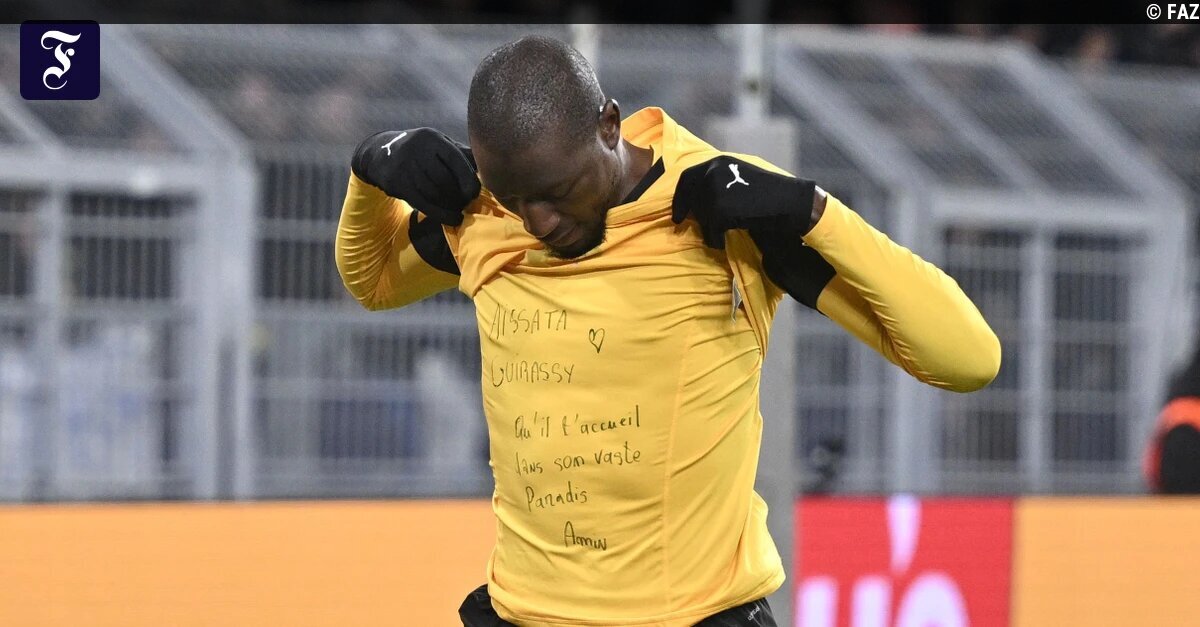 © FAZ
F
AISSATA
GUIRASSY
Qu'il t'accueil
dans son vaste
Paradis
Amin